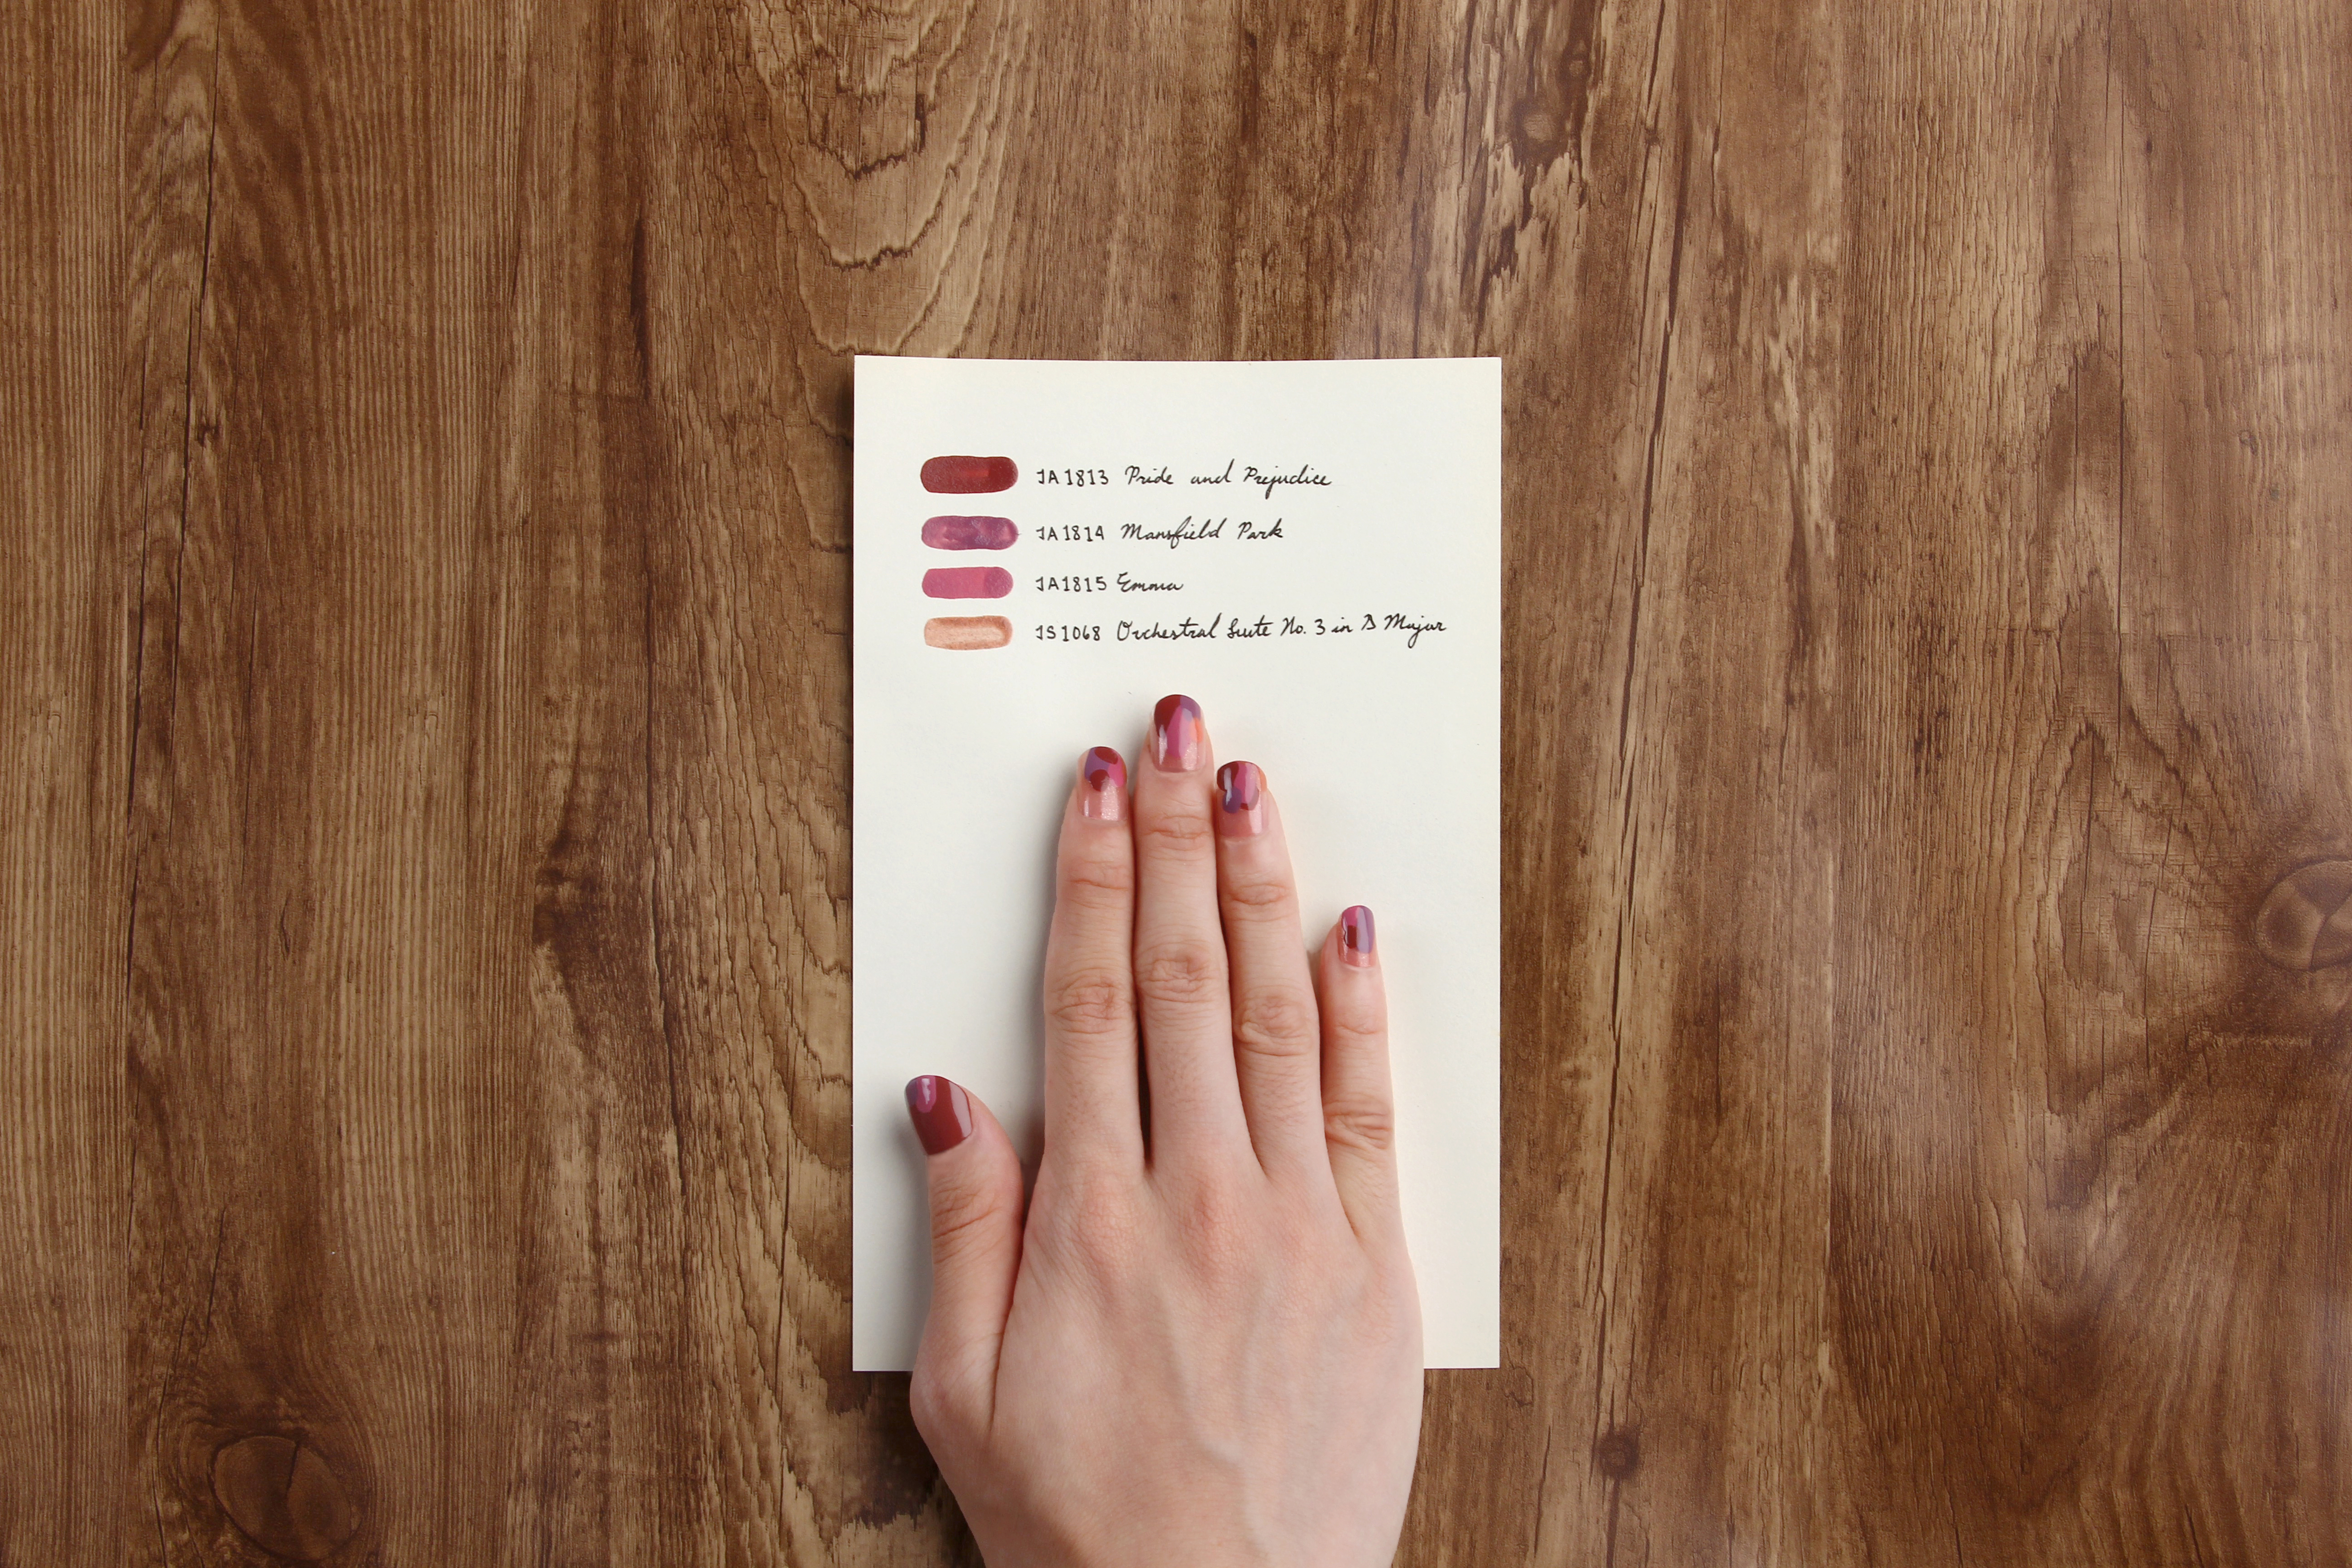 JA1813 Pride and Prejudice
JA1814 Mansfield Park
JA1815 Emma
JS1068 Orchestral Suite No. 3 in D Major